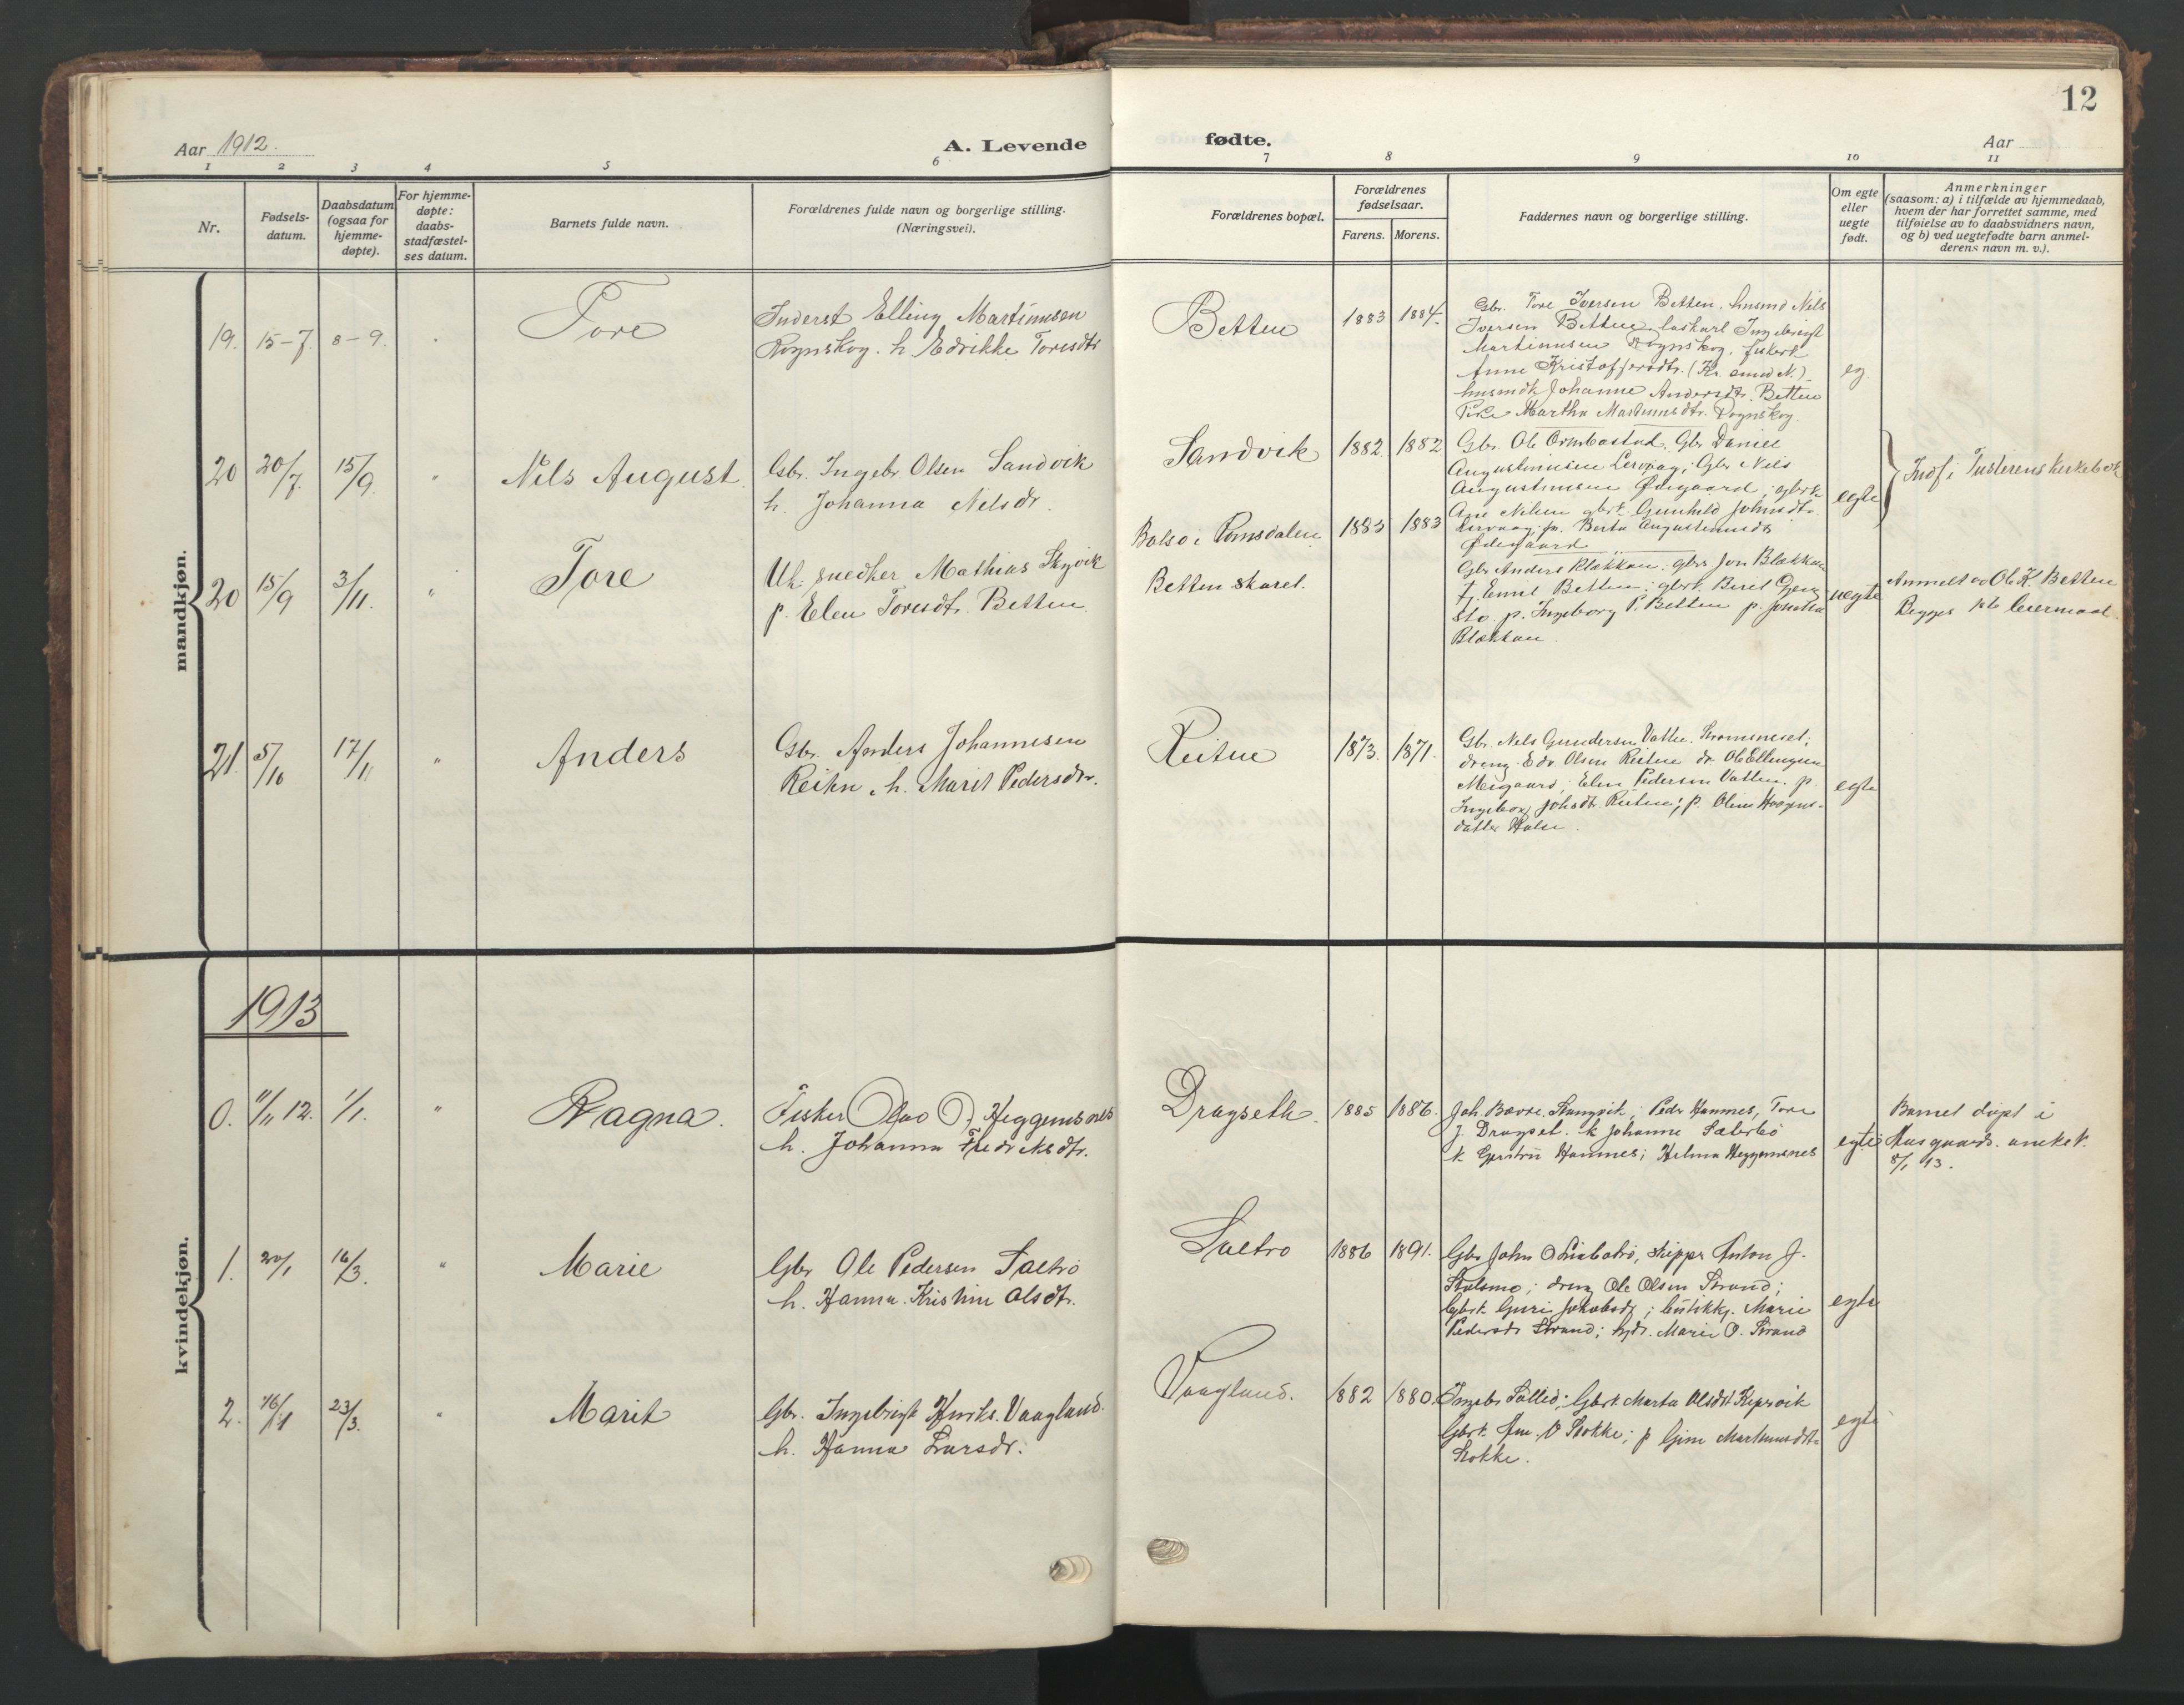 12
Aar 1912.
A. Levende
fødte.
Aar
1 2 3 4 5 6 7 8 9 10 11
Nr.
Fødsels-
datum.
Daabsdatum
(ogsaa for
hjemme-
døpte).
For hjemme-
døpte:
daabs-
stadfæstel-
ses datum.
Barnets fulde navn.
Forældrenes fulde navn og borgerlige stilling.
(Næringsvei).
Forældrenes bopæl.
Forældrenes
fødselsaar.
Farens. Morens.
Faddernes navn og borgerlige stilling.
Om egte
eller
uegte
født.
Anmerkninger
(saasom: a) i tilfælde av hjemmedaab,
hvem der har forrettet samme, med
tilføielse av to daabsvidners navn,
og b) ved uegtefødte barn anmel-
derens navn m. v.).
mandkjøn.
19. 15-7. 8-9. Tore
Inderst Elling Martinusen
Rognskog. h. Edrikke Toresdtr
Betten 1883 1884.
Gbr. Tore Iversen Betten, husmd Nils
Iversen Betten, laskarl Ingebrigt
Martinusen Rognskog, fiskerk
Anne Kristoffersdtr. (Kr.sund N.)
husmdk Johanne Andersdtr. Betten
Pike Martha Martinusdtr. Rognskog.
eg.
20 20/7. 15/9. " Nils August.
Gbr. Ingebr Olsen Sandvik
h. Johanna Nilsdr.
Sandvik 1882 1882
Gbr. Ole Ormbostad, Gbr Daniel
Augustinusen Lervaag; Gbr Nils
Augustinusen Ødegaard; gbrk
Ane Nilsen gbrk. Gunhild Johnsdtr
Lervaag; p. Berta Augustinusdr
Ødegaard
egte
Indf i Tusterens kirkebok
20 15/9 3/11. " Tore
Uk. snedker Mathias Skjvik
p. Elen Toresdtr. Betten
Bolsø i Romsdalen 1883 1883
Betten skaret.
Gbr Anders Blekkan; gbr Jon Blekkan
Emil Betten; gbrk. Berit
p. Ingeborg T. Betten p.
Blekkan.
uegte
Anmelt av Ole K. Betten
Begges 1ste leiermaal.
21. 5/10 17/11 " Anders
Gbr. Anders Johannesen
Reiten, h. Marit Pedersdtr.
Reiten 1873. 1871.
Gbr. Nils Gundersen Vatten. Strømmeset;
dreng Edv. Olsen Reiten dr. Ole Ellingsen
Megaard; Elen Pedersen Vatten. p.
Ingeborg Johsdtr. Reiten; p. Oline Haagens-
datter Halse.
egte
kvindekjøn.
1913
0. 11/11 12. 1/1. " Ragna.
Fisker Olav O. Heggemsnes
h. Johanna Fredriksdtr.
Drageseth. 1885 1886.
Joh. Bævre, Stangvik; Peder Hannes, Tore
J. Drageset. k Johanne Sæterbø
k. Gjertru Hamnes; Helma Heggemsnes
egte
Barnet døpt i
Aasgaards. anekek.
8/1 13.
1. 20/1 16/3. " Marie
Gbr Ole Pedersen Sætrø
h. Hanna Kristine Olsdtr.
Sætrø 1886 1891.
Gbr John O Liabotrø, Skipper Anton J.
Stolsmo; dreng Ole Olsen Strand;
Gbrk Guri Jakobsdr; butikkj. Marie
Pedersdr Strand; Marie O. Strand
egte
2. 16/1 23/3. " Marit
Gbr. Ingebrigt Henriks. Vaagland.
h. Hanna Larsdr.
Vaagland. 1882 1880.
Ingebr Sollid; Gbrk. Marta Olsdtr Kjprvik
Gbrk. Ane O Stokke; p Gine Martinusdtr
Stokke.
egte